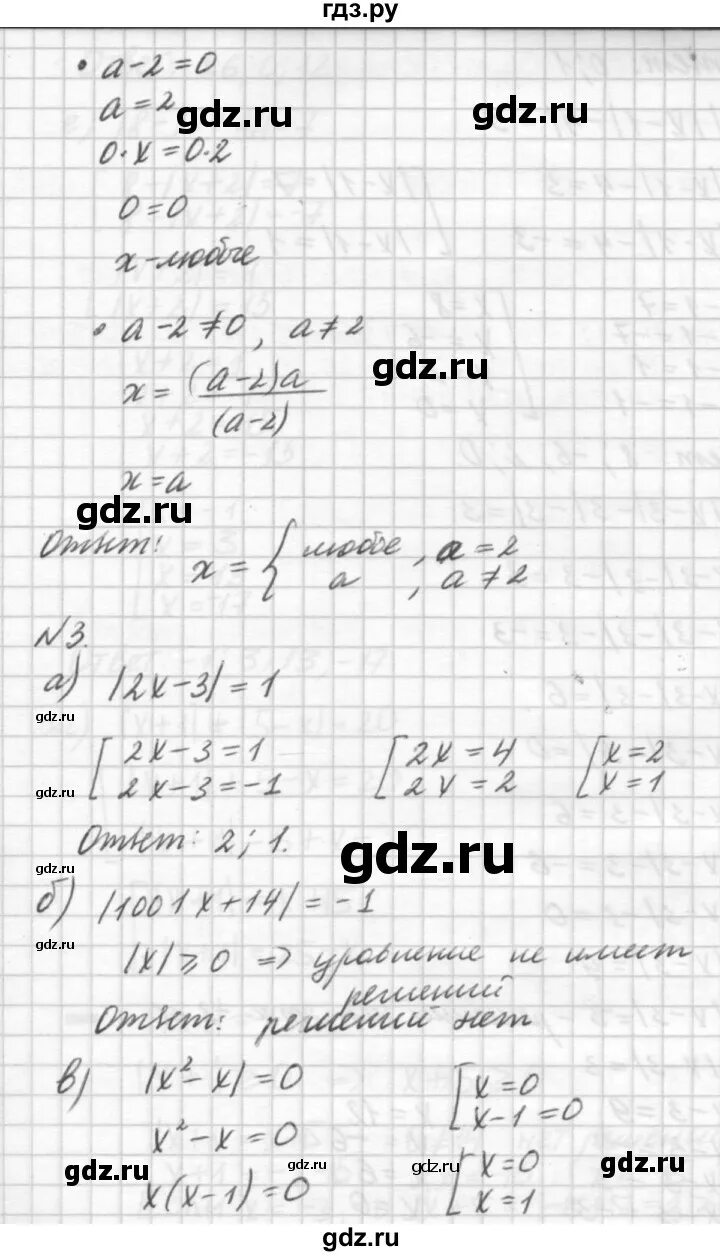 гдз.ру
• a-2=0
a=2
gdz.ru
gdz.ru
0·x=0·2
0=0
x-любое
• a-2≠0, a≠2
gdz.ru
x= (a-2)a
(a-2)
x=a
gdz.ru
Ответ: x = { любое, a=2
a, a≠2
№3.
а) |2x-3|=1
gdz.ru
[ 2x-3=1 [ 2x=4 [ x=2
gdz.ru
2x-3=-1 2x=2 x=1
Ответ: 2; 1.
gdz.ru
gdz.ru
б) |1001x+14|=-1
gdz.ru
|x|≥0 => уравнение не имеет
решений
Ответ: решений нет
в) |x²-x|=0 [ x=0
x-1=0
x²-x=0
gdz.ru gdz.ru gdz.ru gdz.ru
x(x-1)=0 [ x=0
x=1
gdz.ru